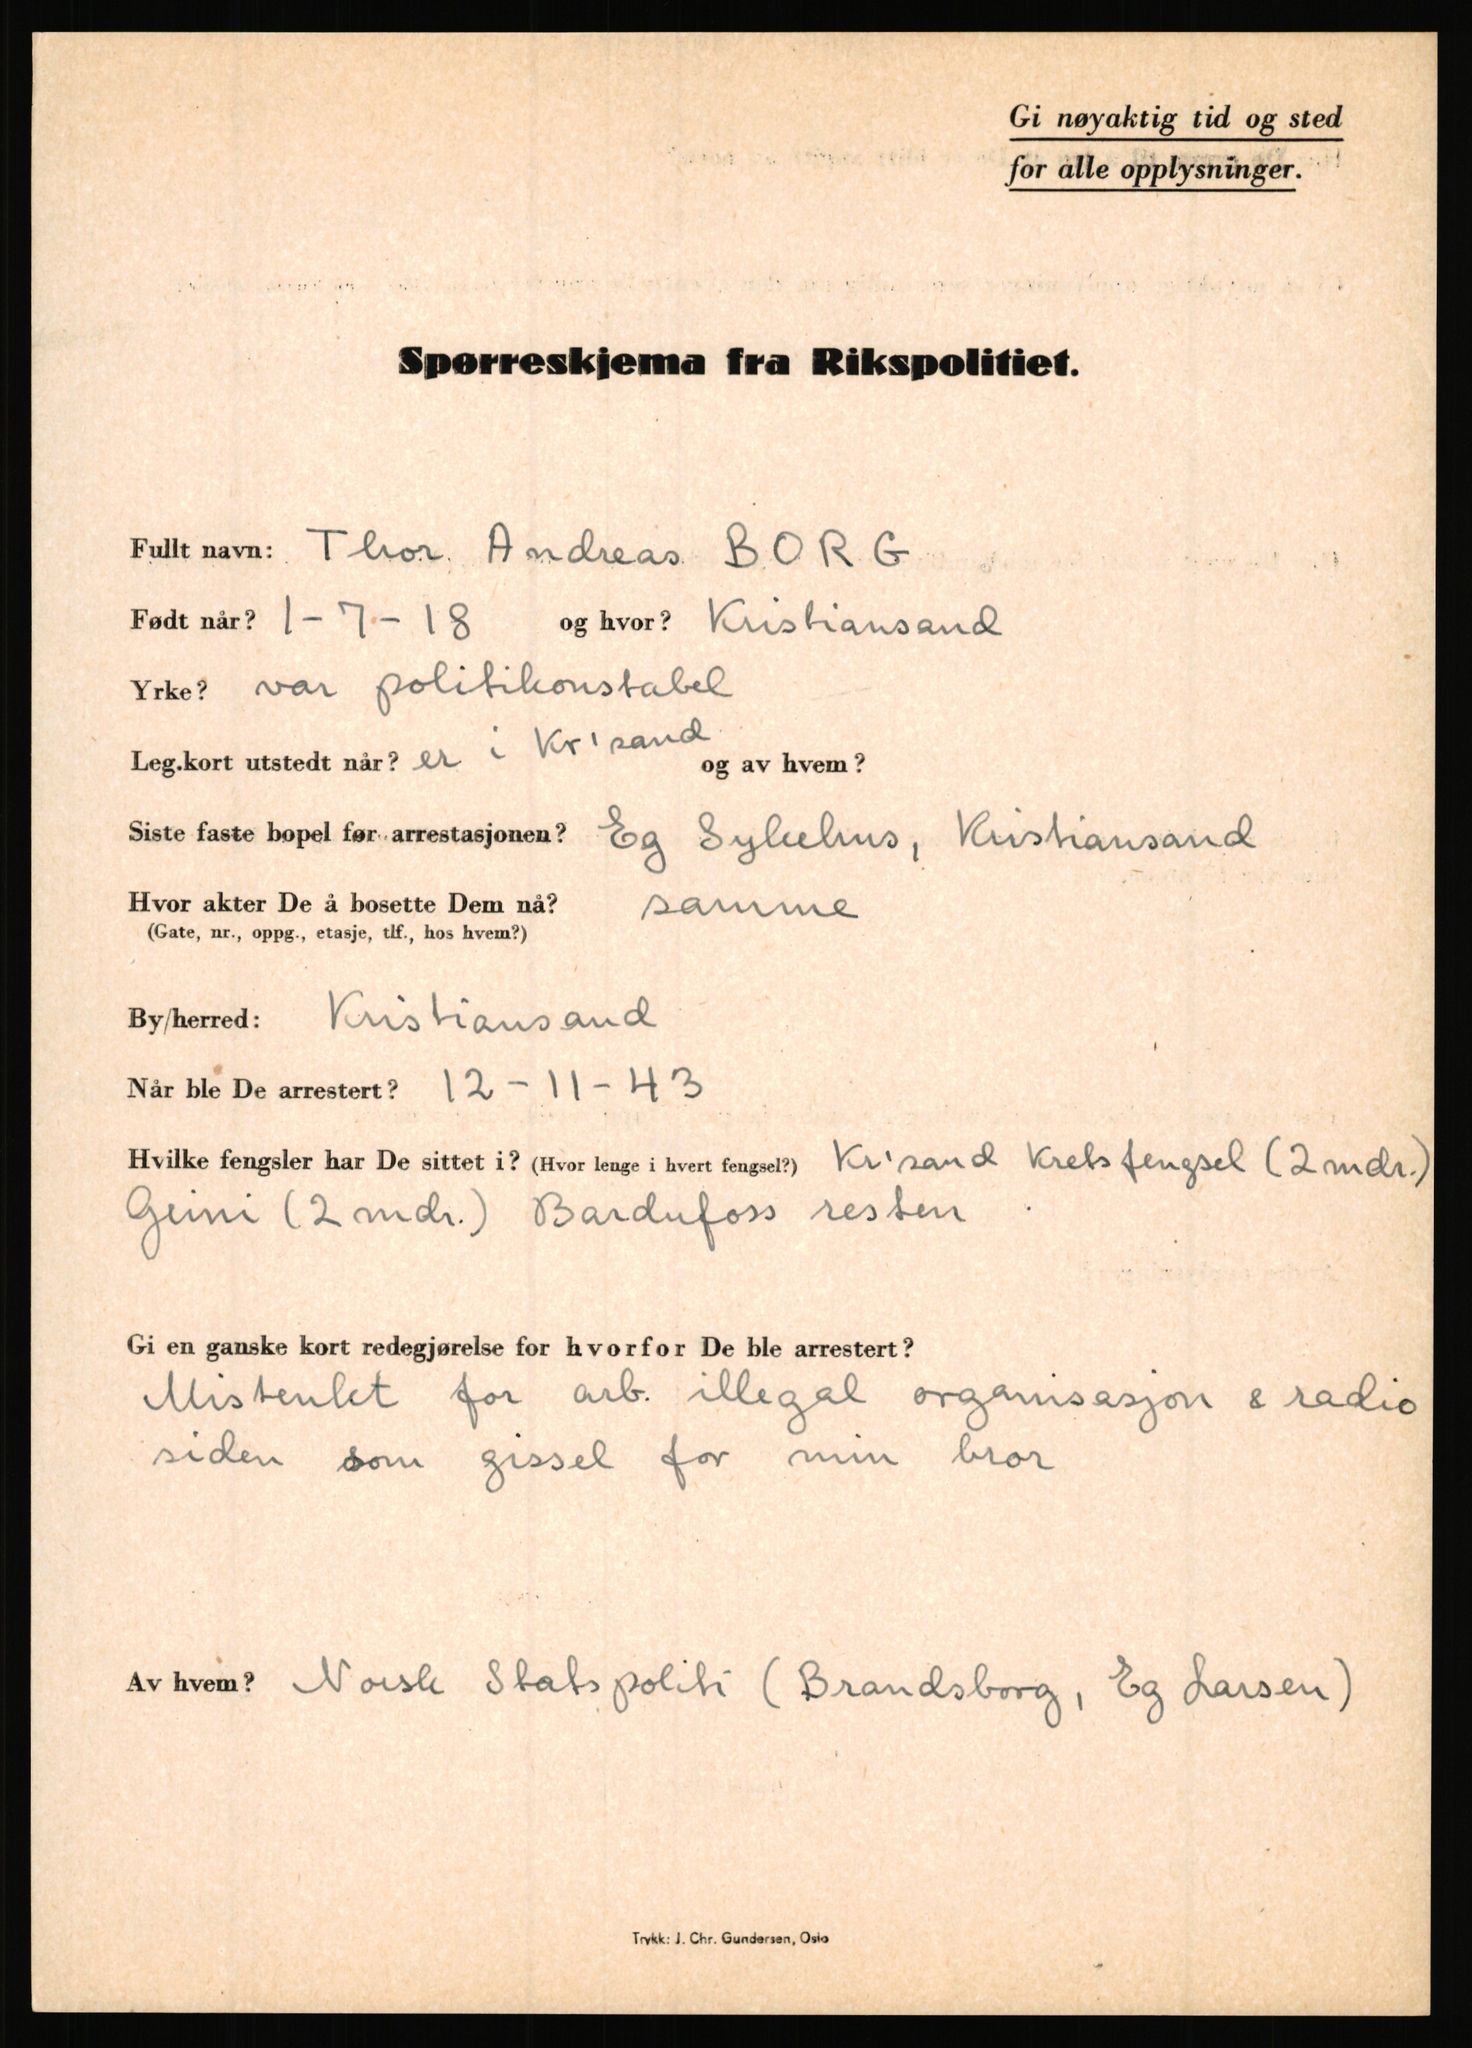 Gi nøyaktig tid og sted
for alle opplysninger.
Spørreskjema fra Rikspolitiet.
Fullt navn: Thor Andreas BORG
Født når? 1-7-18 og hvor? Kristiansand
Yrke? var politikonstabel
Leg.kort utstedt når? er i Kr'sand og av hvem?
Siste faste bopel før arrestasjonen? Eg Sykehus, Kristiansand
Hvor akter De å bosette Dem nå? samme
(Gate, nr., oppg., etasje, tlf., hos hvem?)
By/herred: Kristiansand
Når ble De arrestert? 12-11-43
Hvilke fengsler har De sittet i? (Hvor lenge i hvert fengsel?) Kr'sand Kretsfengsel (2 mdr.)
Grini (2 mdr.) Bardufoss resten
Gi en ganske kort redegjørelse for hvorfor De ble arrestert?
Mistenkt for arb. illegal organisasjon & radio
siden som gissel for min bror
Av hvem? Norsk Statspoliti (Brandsborg, Eg Larsen)
Trykk: J. Chr. Gundersen, Oslo